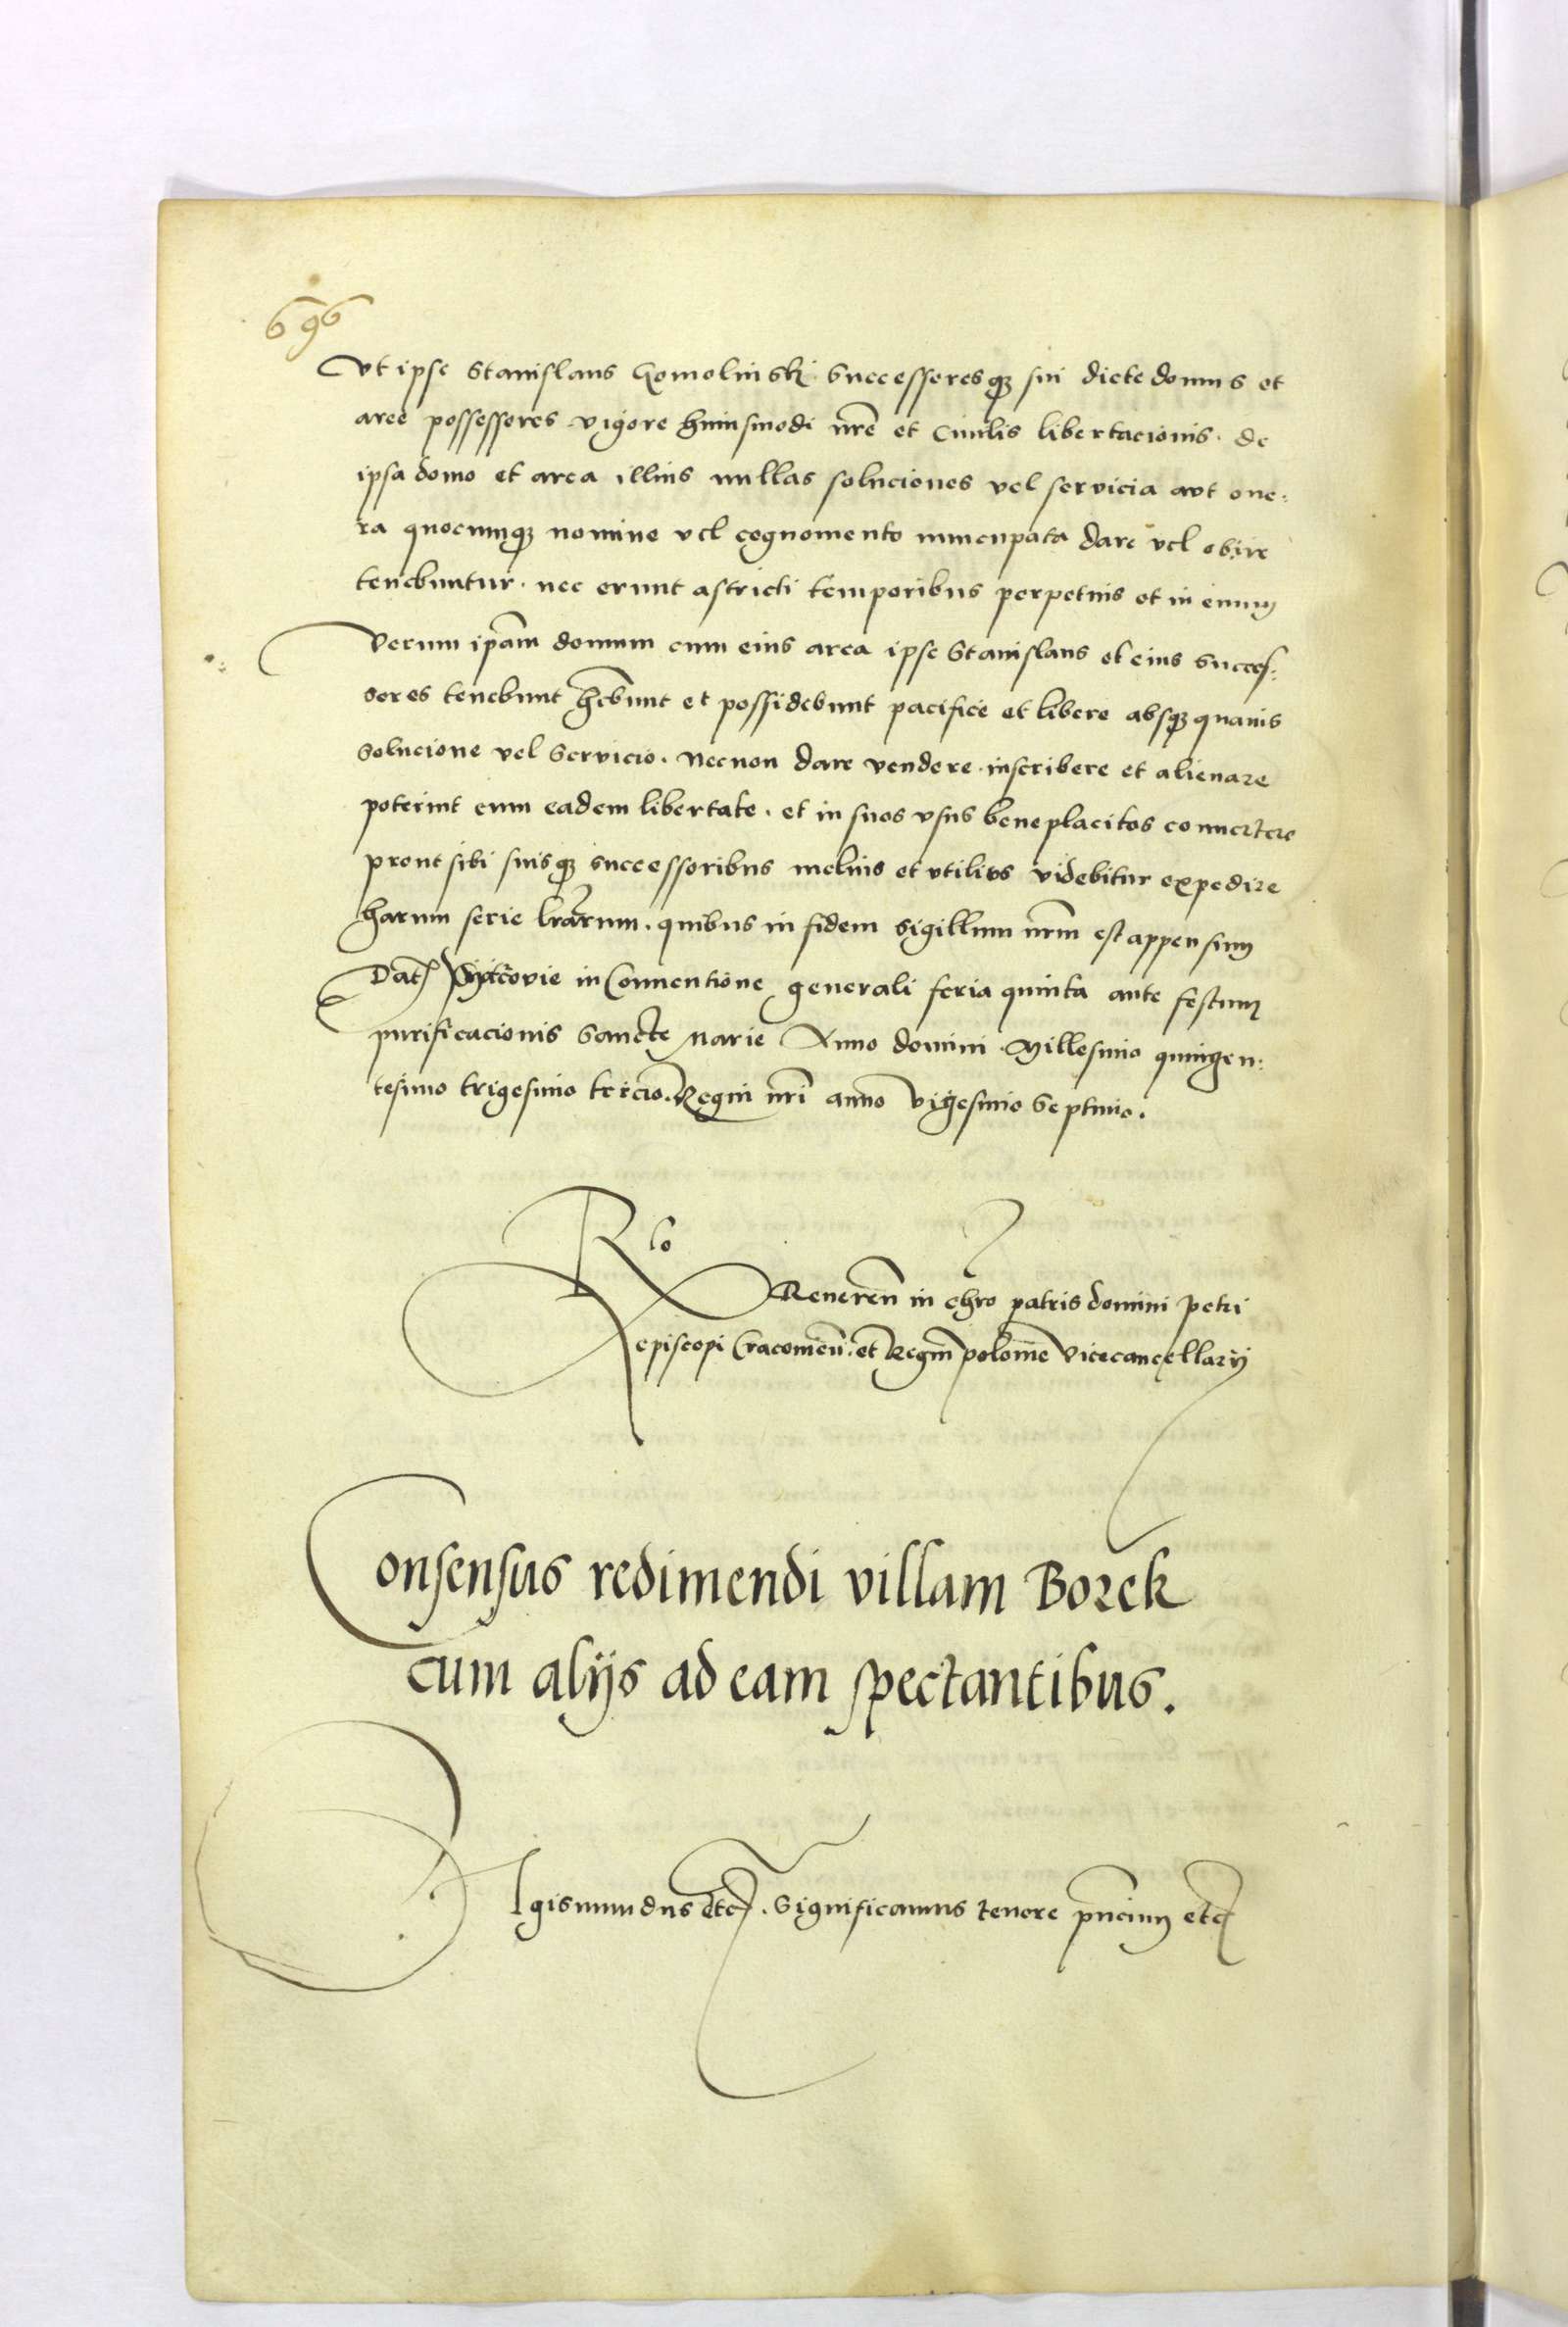 696
Vt ipse Stanislaus Gomolinski Successoresq; sui dicte domus et
aree possessores vigore huiusmodi nre et Ciuilis libertacionis. de
ipsa domo et area illius nullas soluciones vel servicia avt one:
ra quocumq; nomine vel cognomento nuncupata dare vel obire
tenebuntur. nec erunt astricti temporibus perpetuis et in euum
Verum ipam domum cum eius area ipse Stanislaus et eius Succes:
sores tenebunt hebunt et possidebunt pacifice et libere absq; quauis
Solucione vel Servicio. Necnon dare vendere inscribere et alienare
poterint cum eadem libertate. et in suos vsus beneplacitos conuertere
prout sibi suisq; Successoribus melius et vtilius videbitur expedire
harum serie lrarum. quibus in fidem Sigillum nrm est appensum
Dat Piotrcovie in Conuentione generali feria quinta ante festum
purificacionis Sancte Marie Anno domini Millesimo quingen:
tesimo trigesimo tercio. Regni nri anno Vigesimo Septimo.
Rlo
Reueren in chro patris domini Petri
episcopi Cracouien. et Regni polonie Vicecancellarij
Consensus redimendi villam Borek
cum alijs ad eam spectantibus.
SIgismundus etc. Significamus tenore pncium etc